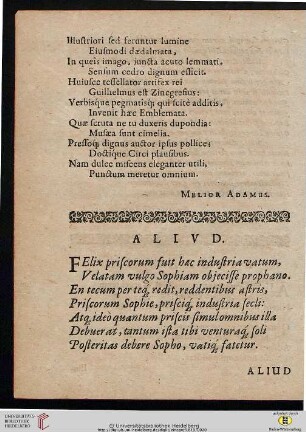 Illustriori sed feruntur lumine
Eiusmodi dædalmata,
In queis imago, iuncta acuto lemmati,
Sensum cedro dignum efficit.
Huiusce tessellator artifex rei
Guilhelmus est Zincgrefius:
Verbisque pegmatisq; qui scitè additis,
Invenit hæc Emblemata.
Quæ scruta ne tu duxeris dupondia:
Musæa sunt cimelia.
Pressoq; dignus auctor ipsus pollice;
Doctique Circi plausibus.
Nam dulce miscens eleganter utili,
Punctum meretur omnium.
MELIOR ADAMUS.
ALIVD.
FElix priscorum fuit hac industria vatum,
Velatam vulgo Sophiam objecisse prophano.
En tecum per teq́; redit, reddentibus astris,
Priscorum Sophie, prisciq́; industria secli:
Atq́; ideò quantum priscis simul omnibus illa
Debuerat, tantum ista tibi venturaq́; soli
Posteritas debere Sopho, vatiq́; fatetur.
ALIUD
UNIVERSITÄTS-
BIBLIOTHEK
HEIDELBERG
© Universitätsbibliothek Heidelberg